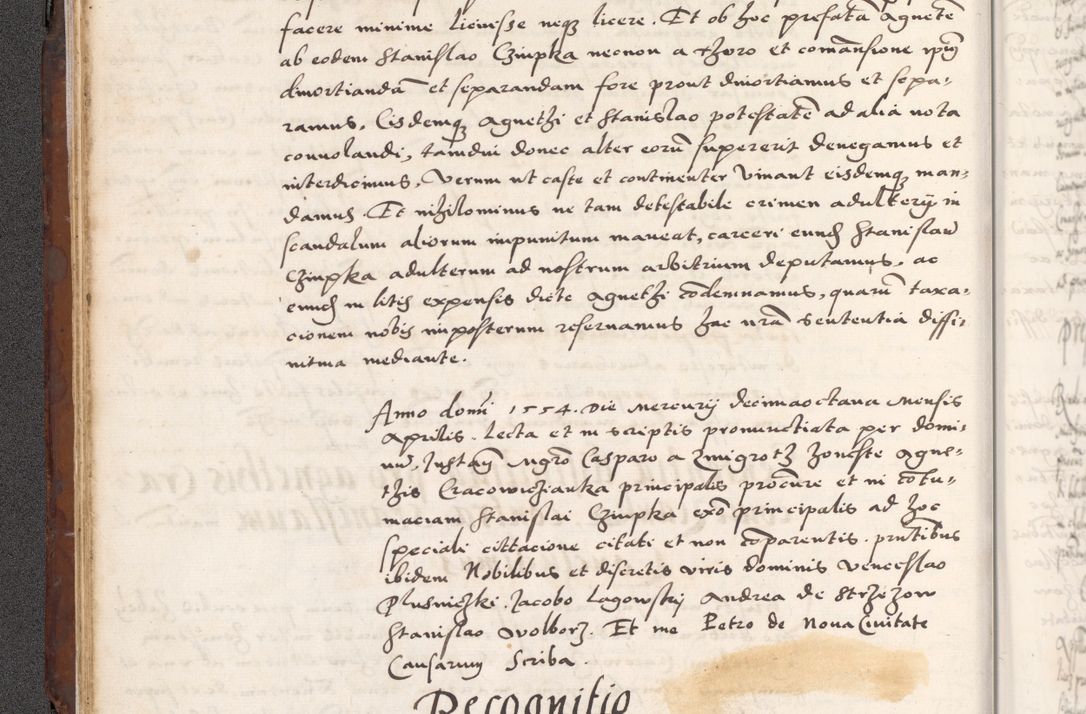 facere minime licuisse neqz licere. Et ob hoc prefatā Agnetē
ab eodem Stanislao Czinpka necnon a thoro et comansione ipius
diuortiandā et separandam fore prout diuortiamus et sepa-
ramus. Eisdemqz Agnethi et Stanislao potestatē ad alia vota
conuolandi, tamdui donec alter eorū supererit denegamus et
interdicimus. Verum ut caste et continenter viuant eisdemqz man-
damus. Et nihilominus ne tam detestabile crimen adulterij in
scandalum aliorum impunitum maneat, carceri eundē Stanislaū
Czinpka adulterum ad nostrum arbitrium deputamus, ac
eundē in litis expensis dicte Agnethi cōdemnamus, quarū taxa-
cionem nobis imposterum reseruamus hac nr̄a sententia diffi-
nitiua mediante.
Anno domī 1554. Die Mercurij decimaoctaua Mensis
Aprilis. Lecta et in scriptis pronunctiata per domi-
nū. Instan Mgrō Casparo a Zmigrotz honeste Agne-
this Cracowiczianka principalis procure et in cōtu-
maciam Stanislai Czinpka exō principalis ad hoc
speciali cittacione citati et non cōparentis. pntibus
ibidem Nobilibus et discretis viris dominis Venceslao
Plusniczki. Jacobo Lagowskij Andrea de Strzezow
Stanislao Wolborz. Et me Petro de Noua Ciuitate
Causarum Scriba.
Recognitio